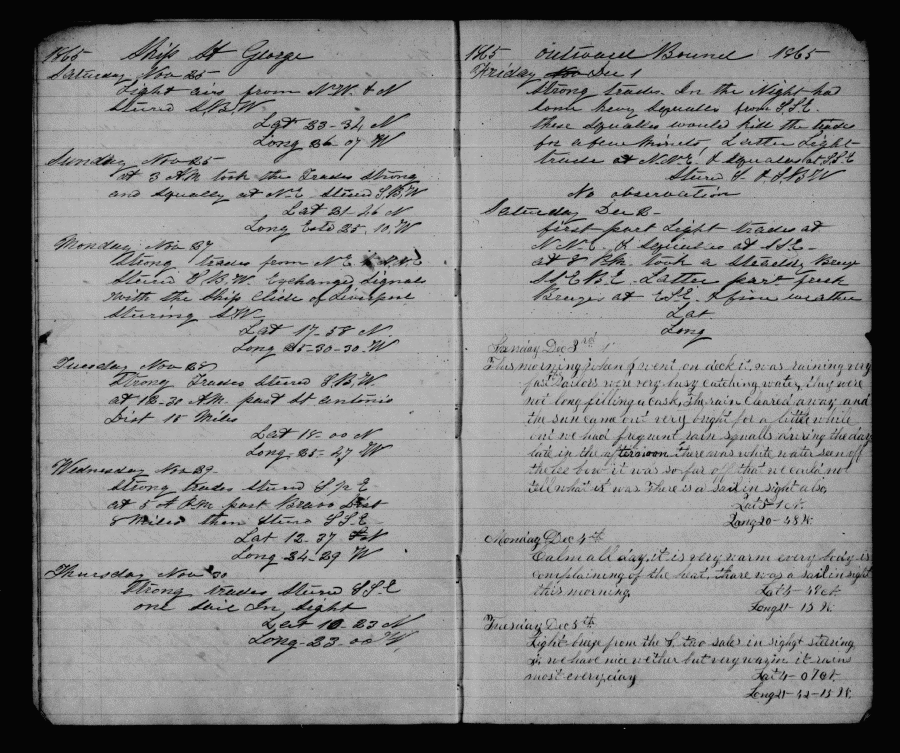 1865 Ship St George
Saturday Nov 25
Light airs from N.W. & N
Stured S.B.W.
Lat 23-34 N
Long 26 07 W
Sunday Nov 25
at 3 A.M. took the Trades Strong
and Squally at N.E. Stured S.B.W
Lat 21-26 N
Long 25. 10. W
Monday Nov 27
Strong trades from N.E.
Stured S.B.W. Exchanged Signals
with the Ship of Liverpool
Sturing S.W.
Lat 17-58 N.
Long 25-30-30. W
Tuesday Nov 28
Strong Trades Stured S.B.W
at 12-20 A.M. past St Antonio
Dist 15 Miles
Lat 15-00 N
Long. 25-27 W
Wednesday Nov 29
Strong trades Stured
at 5 P.M. past Bravo Dist
8 Miles then Stured S.S.E
Lat 12-37 N
Long 24-29 W
Thursday Nov 30
Strong trades Stured S.S.E
one sail In Sight
Lat 10 23 N
Long-23-00 W,
1865 Outward Bound 1865
Friday Dec 1
Strong trades. In the Night had
some hevy Squalls from S.S.E.
these Squalls would kill the trades
for a few Minets, Latter Light
trades at N.N.E. & Squalls at SSE
Stured
No observation
Saturday Dec 2-
first part Light trades at
N.N.E. & Squalls at S.S.E-
at 8 P.M. took a steady Breze
S.E.B.E. Latter part fresh
Brezes at ESE. & fine weather
Lat
Long
Sunday Dec 3rd
This morning when I went on deck it was raining very
fast sailors were very busy catching water, they were
not long filling a cask, the rain cleared away and
the sun came out very bright for a little while
but we had frequent rain squalls during the day
late in the afternoon there was white water seen off
the lee bow it was so far off that we could not
tell what it was There is a sail in sight also
Lat 5-1 N.
Long 20-48 W.
Monday Dec 4th
Calm all day, it is very warm every body is
complaining of the heat, there was a sail in sight
this morning. Lat 4-49 N.
Long 21-15 W.
Tuesday Dec 5th
Light breze from the S. two sales in sight steering
we have nice wether but very warm it rains
most every day Lat 4-07 N.
Long 21-42-15 W.